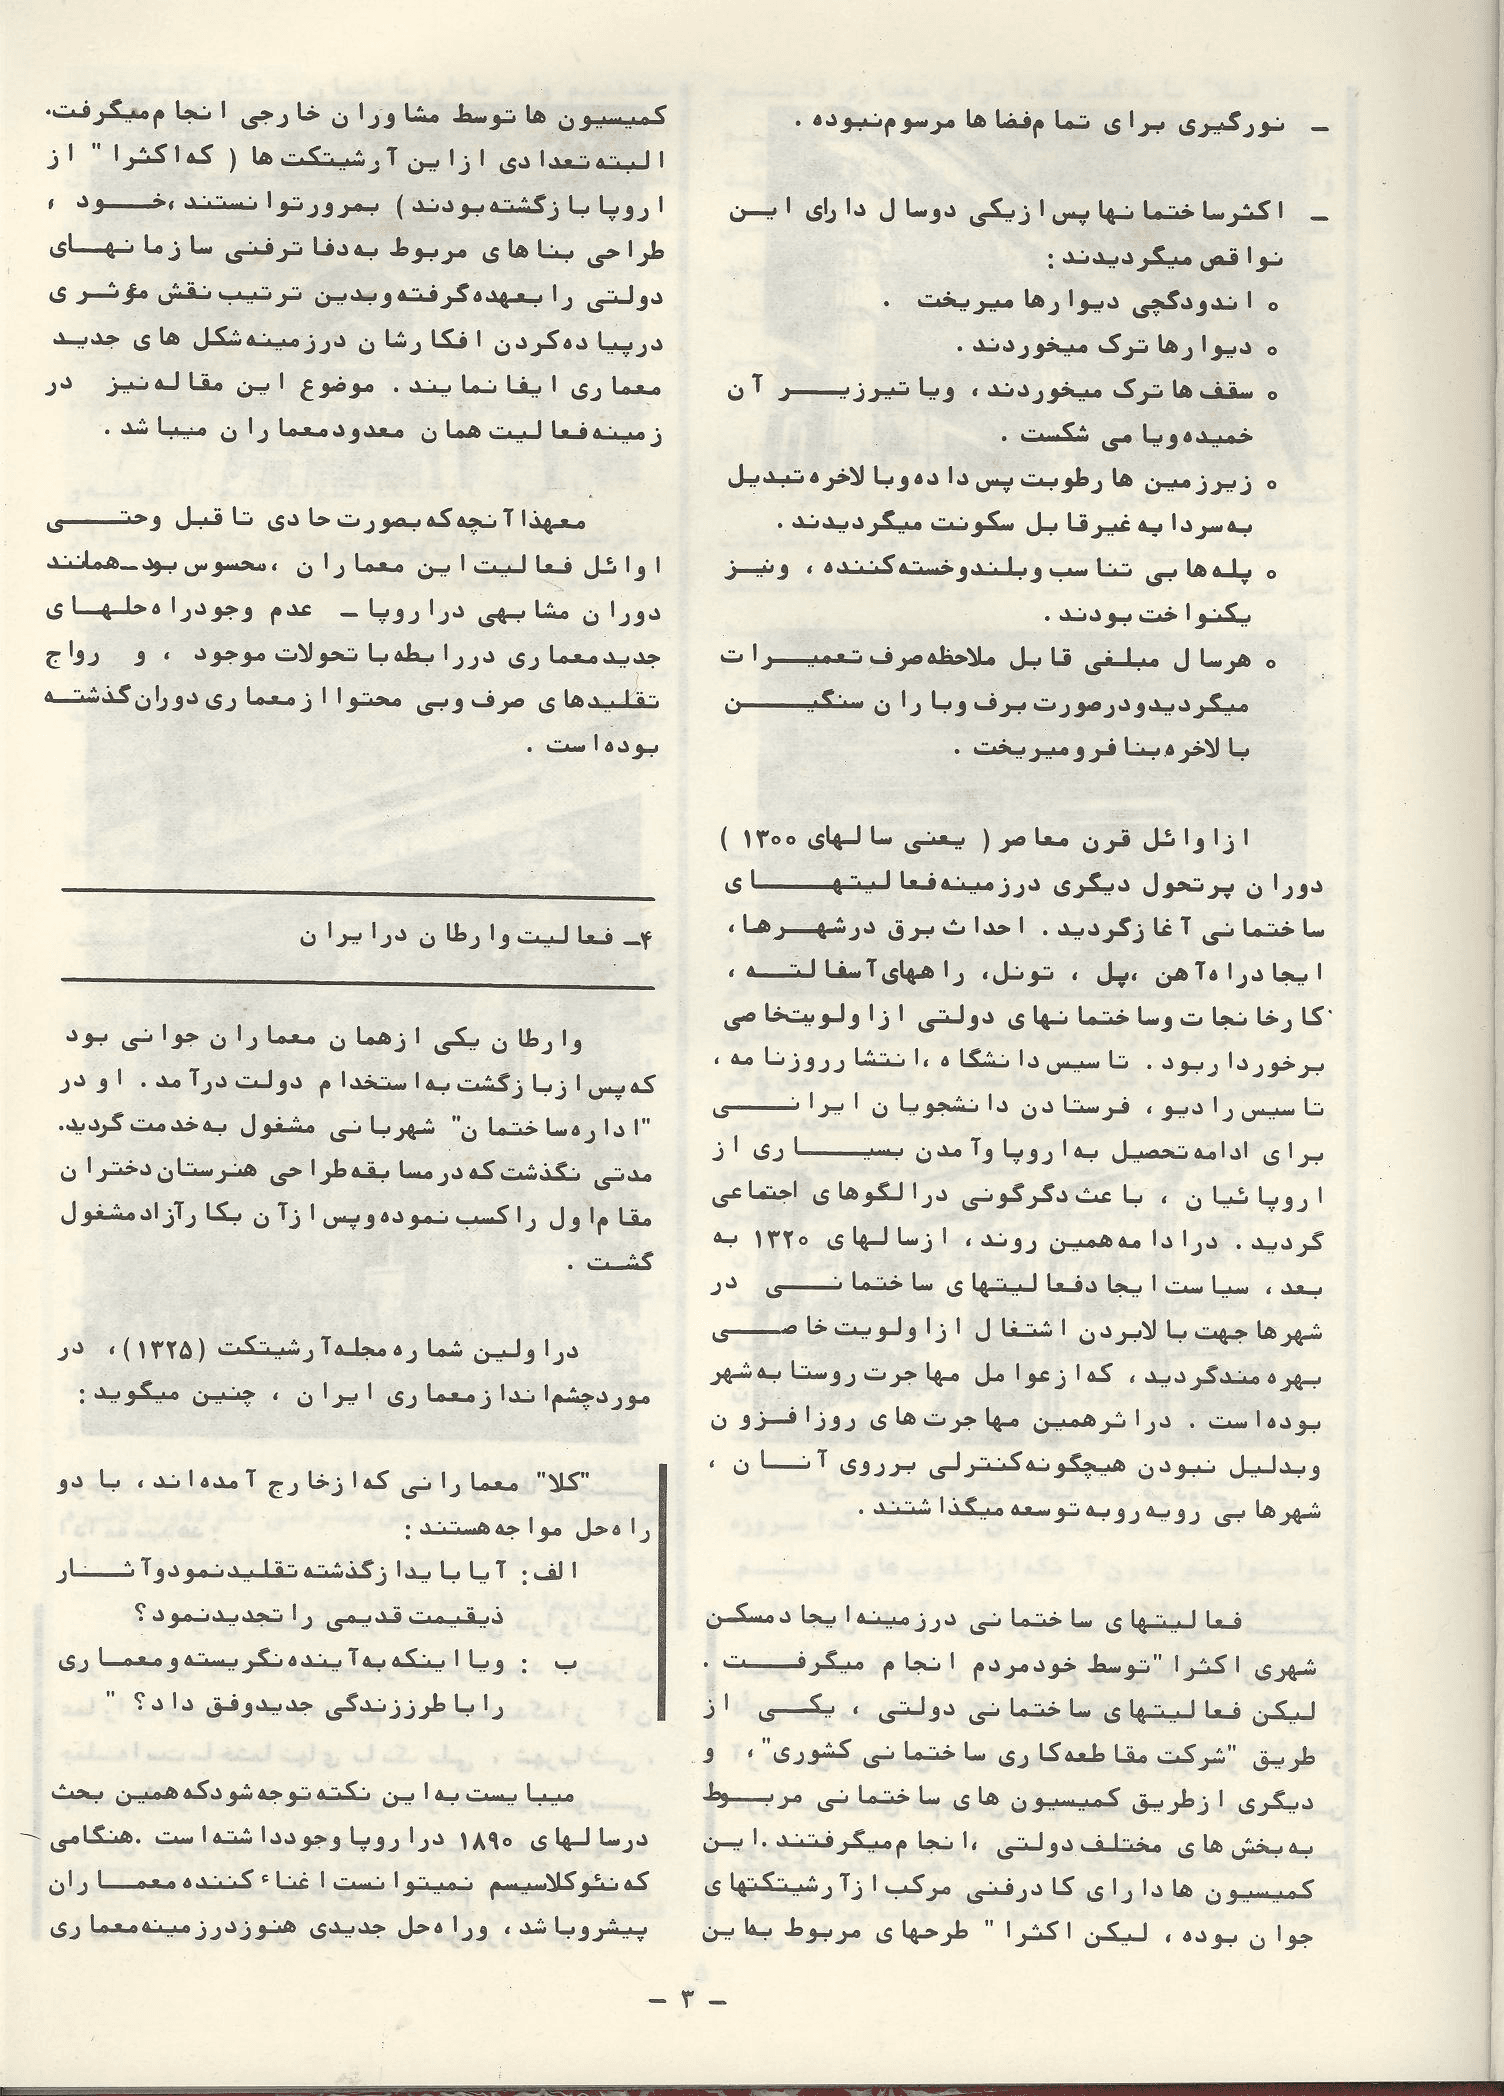 ـ نورگیری برای تمام فضاها مرسوم نبوده .
ـ اکثر ساختمانها پس از یکی دو سال دارای ایـن
نواقص میگردیدند :
o اندود گچی دیوارها میریخت .
o دیوارها ترک میخوردند .
o سقف ها ترک میخوردند ، ویا تیرزیـــر آن
خمیده ویا می شکست .
o زیرزمین ها رطوبت پس داده وبالاخره تبدیل
به سردابه غیرقابل سکونت میگردیدند .
o پله ها بی تناسب و بلند و خسته کننده ، و نیـز
یکنواخت بودند .
o هرسال مبلغی قابل ملاحظه صرف تعمیــرات
میگردید و درصورت برف و باران سنگیـــن
بالاخره بنا فرو میریخت .
از اوائل قرن معاصر ( یعنی سالهای ۱۳۰۰ )
دوران پرتحول دیگری درزمینه فعالیتهـــای
ساختمانی آغاز گردید . احداث برق درشهـرها ،
ایجاد راه آهن ، پل ، تونل ، راههای آسفالتـه ،
کارخانجات وساختمانهای دولتی ازاولویت خاصی
برخوردار بود . تاسیس دانشگاه ، انتشار روزنامه ،
تاسیس رادیو ، فرستادن دانشجویان ایرانـــی
برای ادامه تحصیل به اروپا و آمدن بسیـــاری از
اروپائیان ، باعث دگرگونی در الگوهای اجتماعی
گردید . در ادامه همین روند ، ازسالهای ۱۳۲۰ به
بعد ، سیاست ایجاد فعالیتهای ساختمانـــی در
شهرها جهت بالا بردن اشتغال ازاولویت خاصــی
بهره مند گردید ، که ازعوامل مهاجرت روستا به شهر
بوده است . دراثر همین مهاجرت های روزافـزون
وبدلیل نبودن هیچگونه کنترلی برروی آنــان ،
شهرها بی رویه رو به توسعه میگذاشتند .
فعالیتهای ساختمانی درزمینه ایجاد مسکـن
شهری اکثرا" توسط خود مردم انجام میگرفــت .
لیکن فعالیتهای ساختمانی دولتی ، یکــی از
طریق "شرکت مقاطعه کاری ساختمانی کشوری" ، و
دیگری ازطریق کمیسیون های ساختمانی مربــوط
به بخش های مختلف دولتی ، انجام میگرفتند . ایـن
کمیسیون ها دارای کادر فنی مرکب از آرشیتکتهای
جوان بوده ، لیکن اکثرا " طرحهای مربوط به این
کمیسیون ها توسط مشاوران خارجی انجام میگرفت.
البته تعدادی ازاین آرشیتکت ها ( که اکثرا " از
اروپا بازگشته بودند ) بمرور توانستند ، خــود ،
طراحی بناهای مربوط به دفاتر فنی سازمانهـای
دولتی را بعهده گرفته و بدین ترتیب نقش مؤثـری
در پیاده کردن افکارشان درزمینه شکل های جدیـد
معماری ایفا نمایند . موضوع این مقاله نیز در
زمینه فعالیت همان معدود معماران میباشد .
معهذا آنچه که بصورت حادی تا قبل وحتـــی
اوائل فعالیت این معماران ، محسوس بود ـ همانند
دوران مشابهی دراروپا ـ عدم وجود راه حلهـای
جدید معماری دررابطه با تحولات موجود ، و رواج
تقلیدهای صرف وبی محتوا ازمعماری دوران گذشتـه
بوده است .
۴ـ فعالیت وارطان درایران
وارطان یکی ازهمان معماران جوانی بود
که پس ازبازگشت به استخدام دولت درآمد . او در
"اداره ساختمان" شهربانی مشغول به خدمت گردید.
مدتی نگذشت که درمسابقه طراحی هنرستان دختران
مقام اول راکسب نموده وپس ازآن بکار آزاد مشغول
گشـت .
دراولین شماره مجله آرشیتکت (۱۳۲۵) ، در
مورد چشم اندازمعماری ایران ، چنین میگوید :
"کلا" معمارانی که ازخارج آمده اند ، با دو
راه حل مواجه هستند :
الف : آیا باید ازگذشته تقلید نمود و آثــار
ذیقیمت قدیمی را تجدید نمود ؟
ب : ویا اینکه به آینده نگریسته و معمـاری
را با طرز زندگی جدید وفق داد ؟ "
میبایست به این نکته توجه شود که همین بحث
درسالهای ۱۸۹۰ دراروپا وجود داشته است . هنگامی
که نئوکلاسیسم نمیتوانست اغناء کننده معمــاران
پیشرو باشد ، وراه حل جدیدی هنوز درزمینه معماری
ـ ۳ ـ